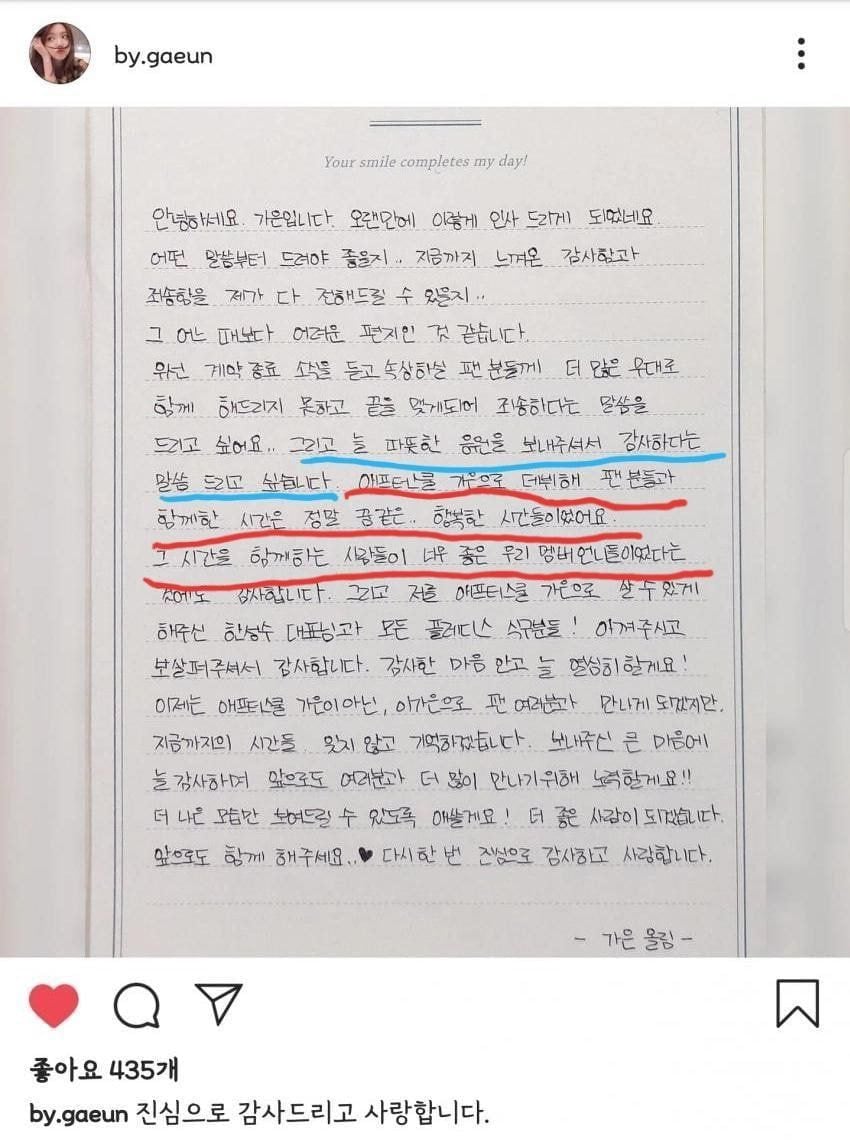 by.gaeun
Your smile completes my day!
안녕하세요. 가은입니다. 오랜만에 이렇게 인사 드리게 되었네요.
어떤 말씀부터 드려야 좋을지.. 지금까지 느껴온 감사함과
죄송함을 제가 다 전해드릴 수 있을지..
그 어느 때보다 어려운 편지인 것 같습니다.
우선 계약 종료 소식을 듣고 속상하실 팬 분들께 더 많은 무대로
함께 해드리지 못하고 끝을 맺게되어 죄송하다는 말씀을
드리고 싶어요.. 그리고 늘 따뜻한 응원을 보내주셔서 감사하다는
말씀 드리고 싶습니다. 애프터스쿨 가은으로 데뷔해 팬 분들과
함께한 시간은 정말 꿈같은.. 행복한 시간들이었어요.
그 시간을 함께하는 사람들이 너무 좋은 우리 멤버언니들이었다는
것에도 감사합니다. 그리고 저를 애프터스쿨 가은으로 살 수 있게
해주신 한성수 대표님과 모든 플레디스 식구분들! 아껴주시고
보살펴주셔서 감사합니다. 감사한 마음 안고 늘 열심히 할게요!
이제는 애프터스쿨 가은이 아닌, 이가은으로 팬 여러분과 만나게 되겠지만,
지금까지의 시간들 잊지 않고 기억하겠습니다. 보내주신 큰 마음에
늘 감사하며 앞으로도 여러분과 더 많이 만나기위해 노력할게요!!
더 나은 모습만 보여드릴 수 있도록 애쓸게요! 더 좋은 사람이 되겠습니다.
앞으로도 함께 해주세요..♥ 다시한번 진심으로 감사하고 사랑합니다.
- 가은 올림 -
좋아요 435개
by.gaeun 진심으로 감사드리고 사랑합니다.